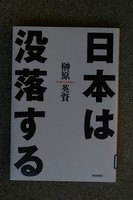 日本は
没落する
榊原
英資